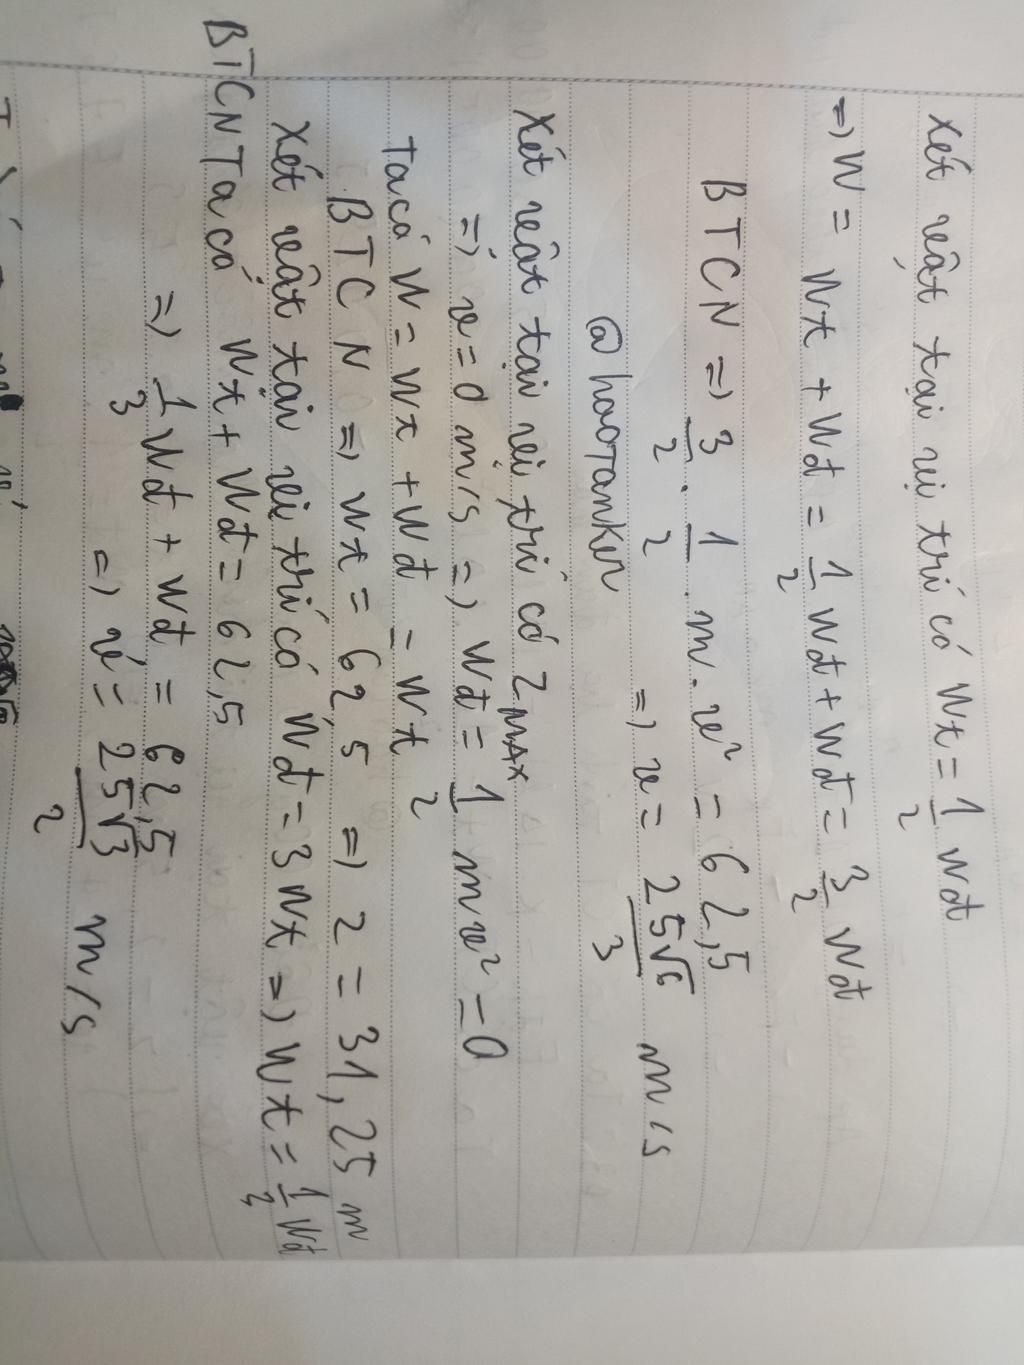 Xét vật tại vị trí có Wt = 1/2 Wđ
=) W = Wt + Wđ = 1/2 Wđ + Wđ = 3/2 Wđ
BTCN =) 3/2 . 1/2 . m . v² = 62,5
=) v = 25√6/3 m/s
@haoTanken
Xét vật tại vị trí có Z MAX
=) v = 0 m/s =) Wđ = 1/2 mv² = 0
Ta có W = Wt + Wđ = Wt
BTCN =) Wt = 62,5 =) Z = 31,25 m
Xét vật tại vị trí có Wđ = 3Wt =) Wt = 1/3 Wđ
BTCN Ta có Wt + Wđ = 62,5
=) 1/3 Wđ + Wđ = 62,5
=) v = 25√3/2 m/s